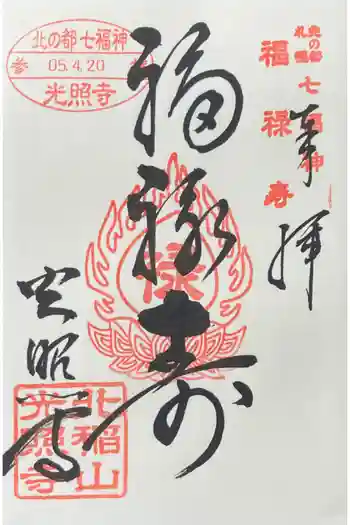 北の都七福神
参 05.4.20 拝
光照寺
北の都
札幌
七福神
福禄寿
奉拝
福禄寿
禄
光照寺
北稲山
光照寺